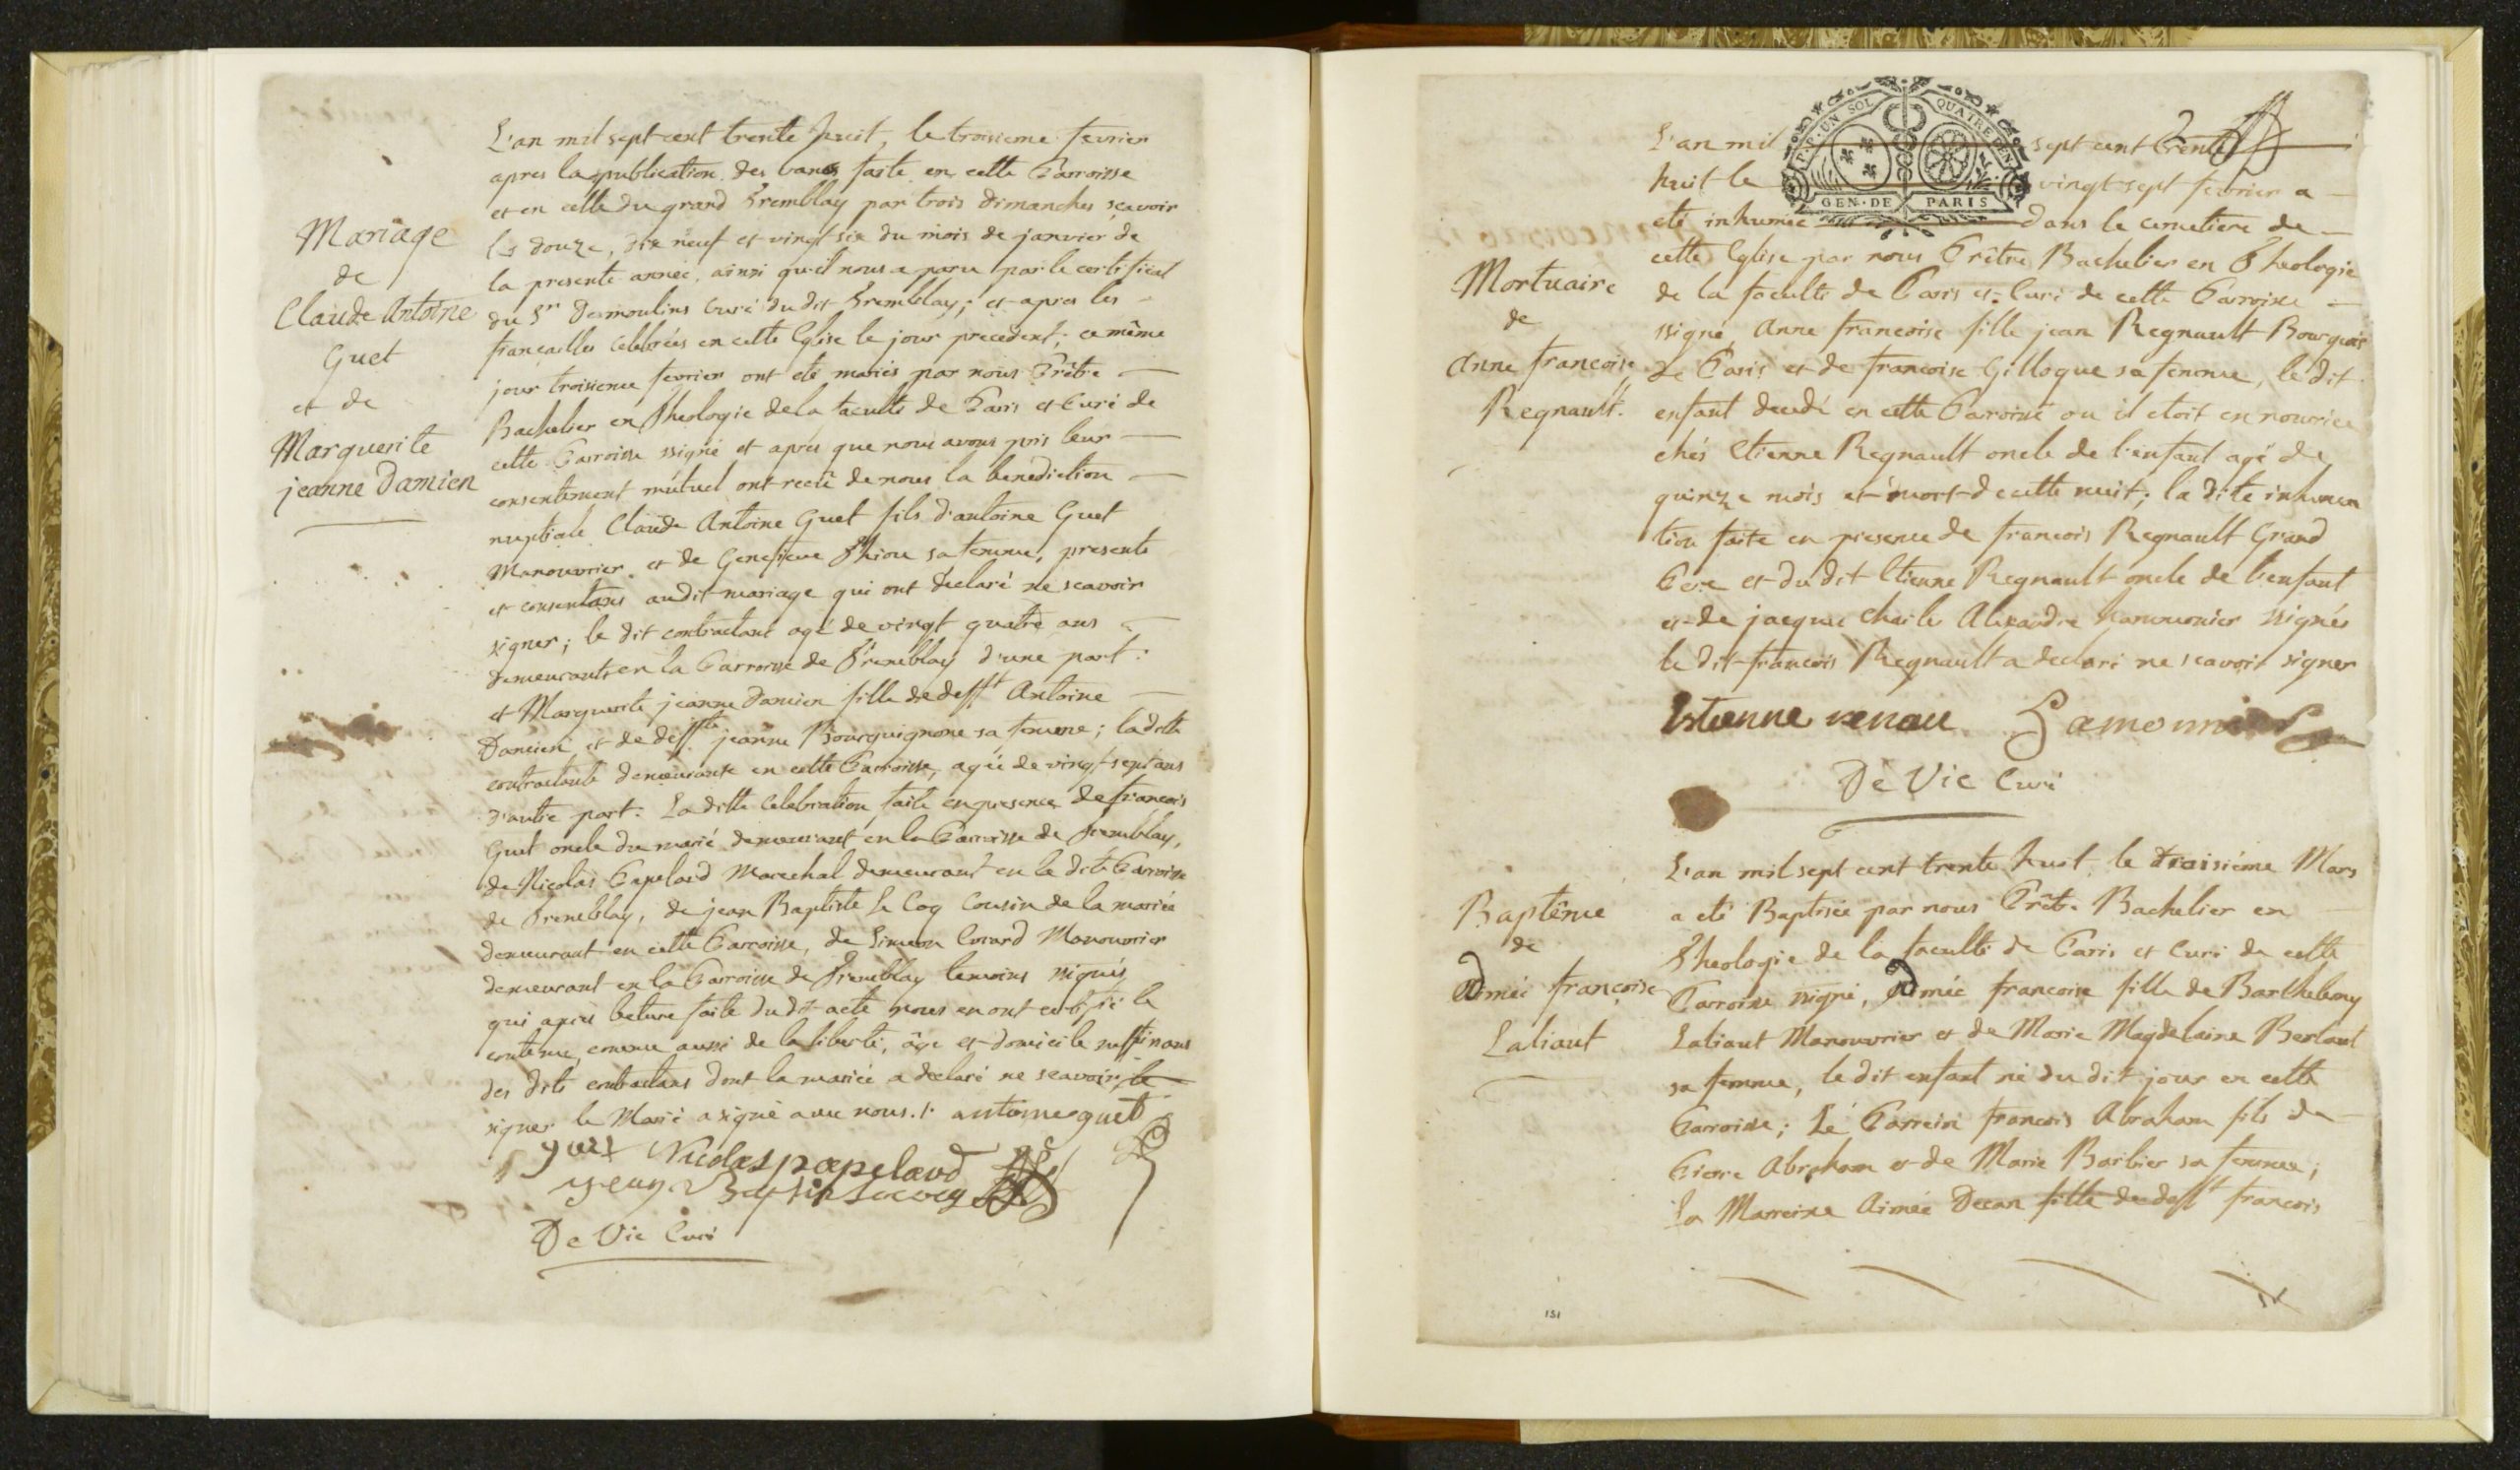 Mariage
de
Claude Antoine
Guet
et de
Marguerite
jeanne Damien
L'an mil sept cent trente huit, le troisieme fevrier
apres la publication des bancs faite en cette Parroisse
et en celle du grand Tremblay par trois dimanches sçavoir
les douze, dix neuf et vingt six du mois de janvier de
la presente année, ainsi qu'il nous a paru par le certificat
du Sr Desmoulins Curé du dit Tremblay; et apres les
fiançailles celebrées en cette Eglise le jour precedent; ce même
jour troisieme fevrier ont eté mariés par nous Prêtre
Bachelier en Theologie de la faculté de Paris et Curé de
cette Parroisse ssigné et apres que nous avons pris leur
consentement mutuel ont recû de nous la benediction
nuptiale Claude Antoine Guet fils d'antoine Guet
Manouvrier et de Genevieve Thiou sa femme, presents
et consentans audit mariage qui ont declaré ne scavoir
signer; le dit contractant agé de vingt quatre ans
demeurant en la Parroisse de Tremblay d'une part:
et Marguerite jeanne Damien fille de defft Antoine
Damien et de deffte jeanne Bourguignone sa femme; la dite
contractante demeurante en cette Parroisse, agée de vingt sept ans
d'autre part. La ditte Celebration faite en presence de françois
Guet oncle du marié demeurant en la Parroisse de Tremblay,
de Nicolas Papelard Marechal demeurant en la dite Parroisse
de Tremblay, de jean Baptiste Le Coq Cousin de la mariée
demeurant en cette Parroisse, de Simeon Manouvrier
demeurant en la Parroisse de Tremblay temoins ssignés
qui apres lecture faite du dit acte nous en ont certifié le
contenu, comme aussi de la liberté, âge et domicile suffisans
des dits contractans dont la mariée a declaré ne scavoir, le
signer le Marié a signé avec nous. antoine guet
guet Nicolas papelard
jean Baptiste Lecocq
De Vic Curé
P.P. UN SOL QUATRE DEN.
GEN. DE PARIS
2
Mortuaire
de
Anne françoise
Regnault.
L'an mil sept cent trente
huit le vingt sept fevrier a
eté inhumée dans le cemetiere de
cette Eglise par nous Prêtre Bachelier en Theologie
de la faculté de Paris et Curé de cette Parroisse
ssigné, Anne francoise fille jean Regnault Bourgeois
de Paris et de francoise Gilloque sa femme, le dit
enfant decedé en cette Parroisse ou il etoit en nourrice
chés Etienne Regnault oncle de l'enfant agé de
quinze mois et mort de cette nuit; la dite inhuma
tion faite en presence de francois Regnault Grand
Pere et du dit Etienne Regnault oncle de l'enfant
et de jacques Charles Alexandre ssignés
le dit francois Regnault a declaré ne scavoir signer
Estienne renau Lamonnier
De Vic Curé
Baptême
de
Aimée françoise
Laliaut
L'an mil sept cent trente huit, le troisiéme Mars
a eté Baptisée par nous Prêtre Bachelier en
Theologie de la faculté de Paris et Curé de cette
Parroisse ssigné, Aimée francoise fille de Barthelemy
Laliaut Manouvrier et de Marie Magdelaine Berlaut
sa femme, le dit enfant né du dit jour en cette
Parroisse; Le Parrein francois Abraham fils de
Pierre Abraham et de Marie Barbier sa femme;
La Marreine Aimée Decan fille de defft francois
151